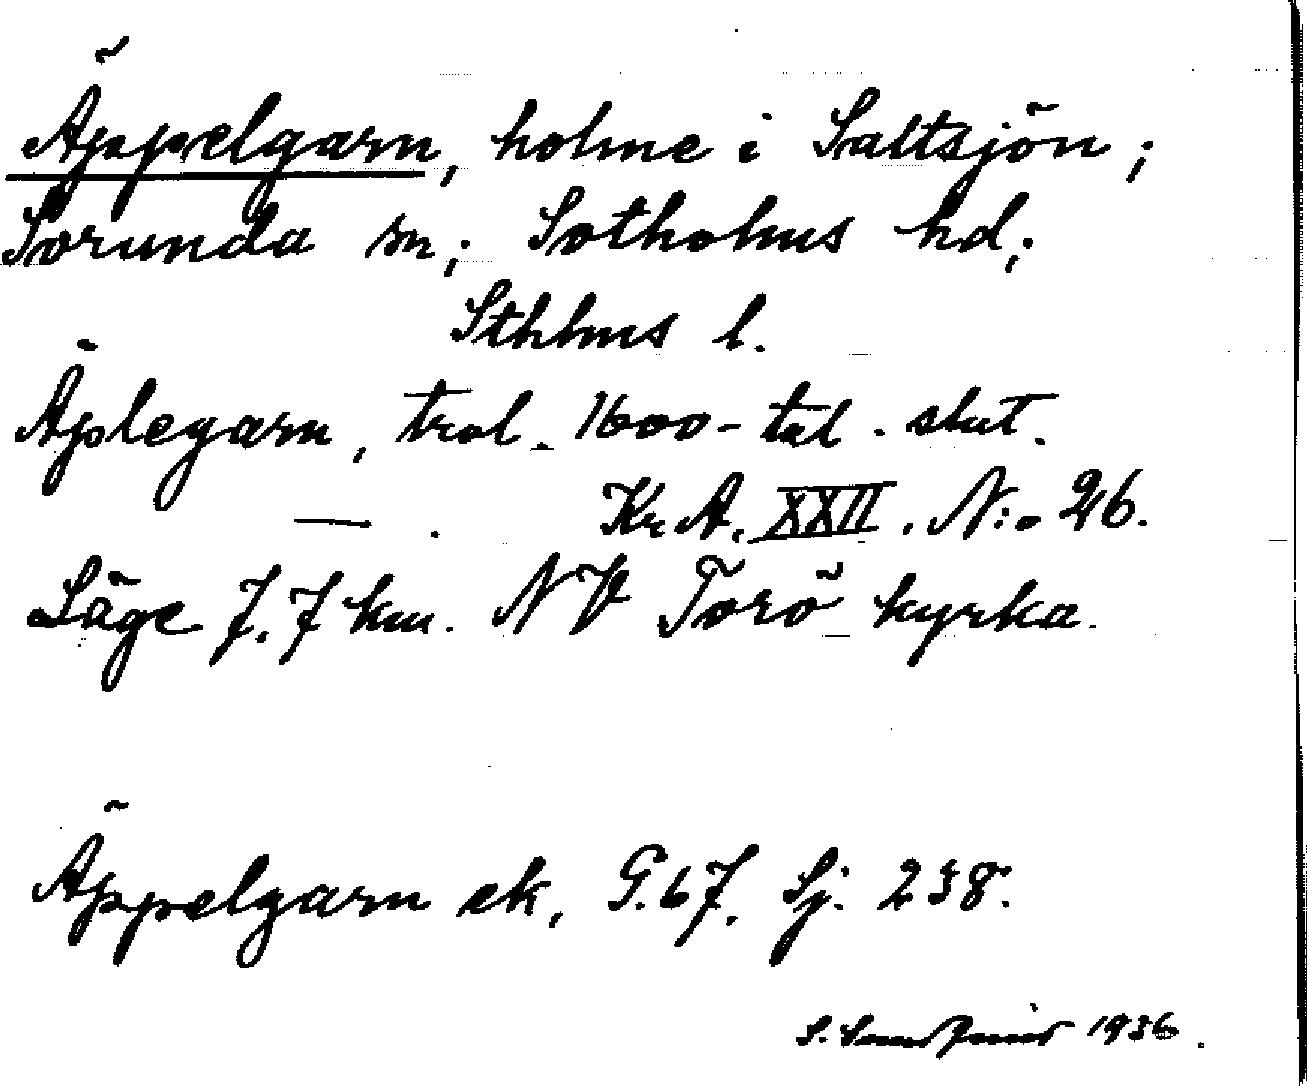 Äppelgarn, holme i Saltsjön;
Sorunda sn; Sotholms hd;
Sthlms l.
Äplegarn, trol. 1600-tal. slut.
— . Kr. A. XXII. N:o 26.
Läge 7.7 km. NV Torö kyrka.
Äppelgarn ek, G. 67. Sj. 238.
S. 1936.